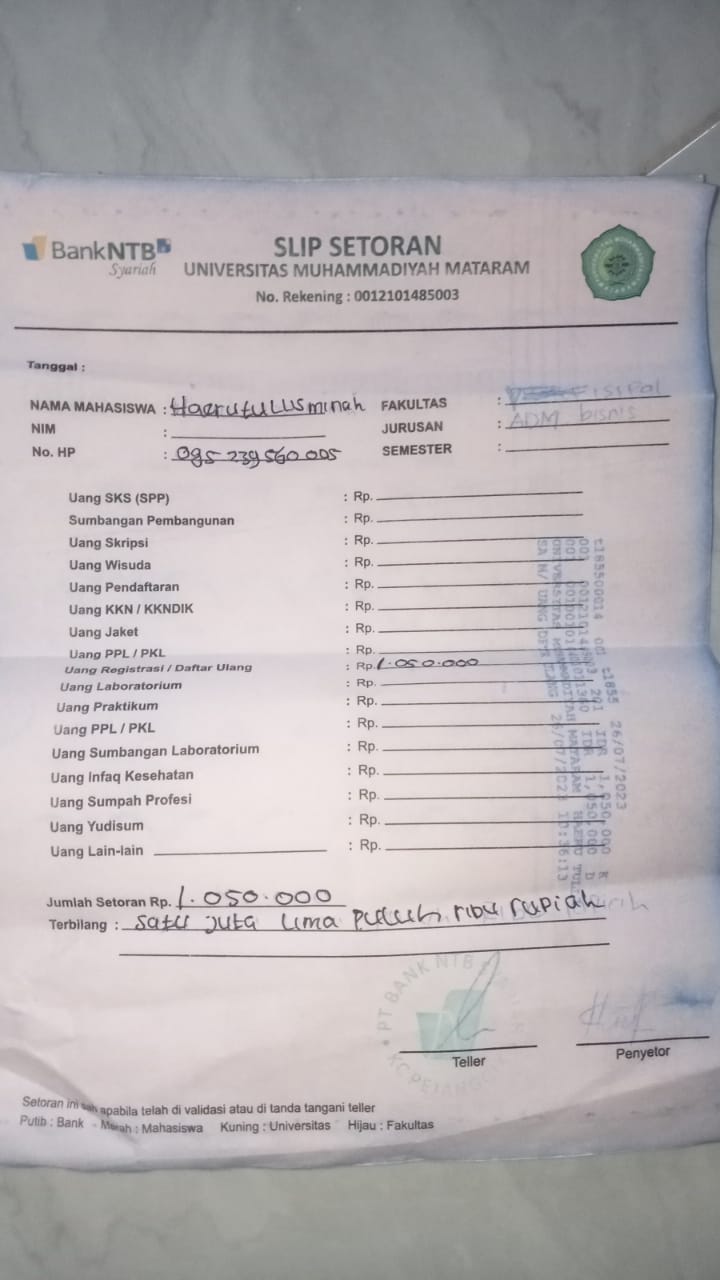 BankNTB Syariah
SLIP SETORAN
UNIVERSITAS MUHAMMADIYAH MATARAM
No. Rekening : 0012101485003
Tanggal :
NAMA MAHASISWA : Haerutulusminah FAKULTAS : FISIPOL
NIM : JURUSAN : ADM bisnis
No. HP : 085 239 560 005 SEMESTER :
Uang SKS (SPP) : Rp.
Sumbangan Pembangunan : Rp.
Uang Skripsi : Rp.
Uang Wisuda : Rp.
Uang Pendaftaran : Rp.
Uang KKN / KKNDIK : Rp.
Uang Jaket : Rp.
Uang PPL / PKL : Rp.
Uang Registrasi / Daftar Ulang : Rp. 1.050.000
Uang Laboratorium : Rp.
Uang Praktikum : Rp.
Uang PPL / PKL : Rp.
Uang Sumbangan Laboratorium : Rp.
Uang Infaq Kesehatan : Rp.
Uang Sumpah Profesi : Rp.
Uang Yudisum : Rp.
Uang Lain-lain : Rp.
t185500014 001 t1855 26/07/2023
IDR 1,050,000
IDR 1,050,000 D
UNIVERSITAS MUHAMMADIYAH MATARAM
26/07/2023
Jumlah Setoran Rp. 1.050.000
Terbilang : satu juta lima puluh ribu rupiah
PT BANK NTB
Teller
Penyetor
Setoran ini sah apabila telah di validasi atau di tanda tangani teller
Putih : Bank - Merah : Mahasiswa Kuning : Universitas Hijau : Fakultas